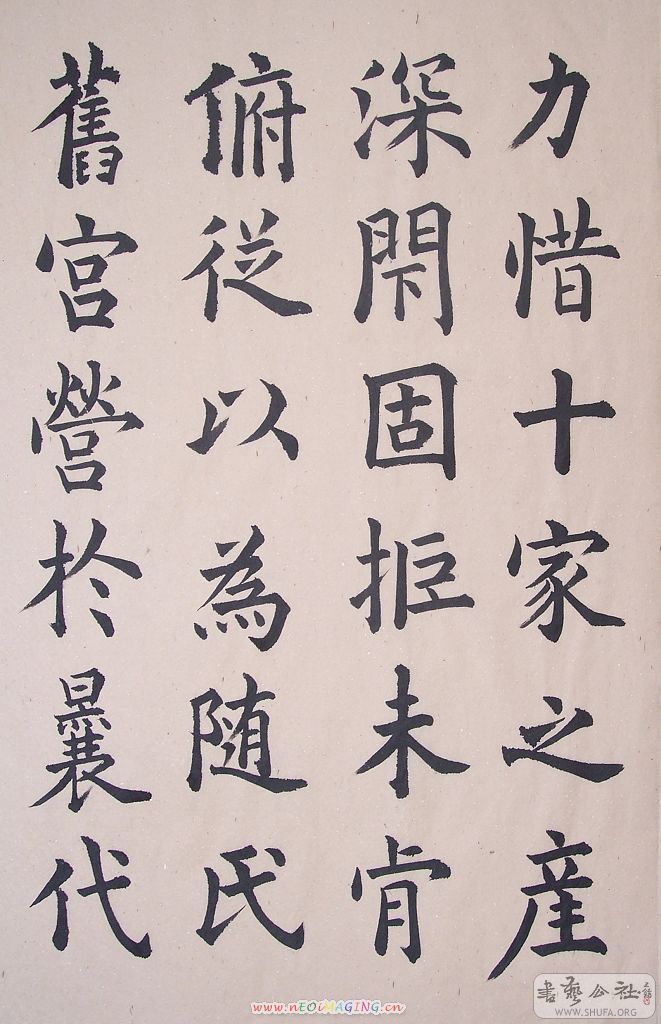 力惜十家之産
深閇固拒未肯
俯従以為随氏
舊宮營於曩代
書藝公社
WWW.SHUFA.ORG
www.nEOiMAGiNG.cn